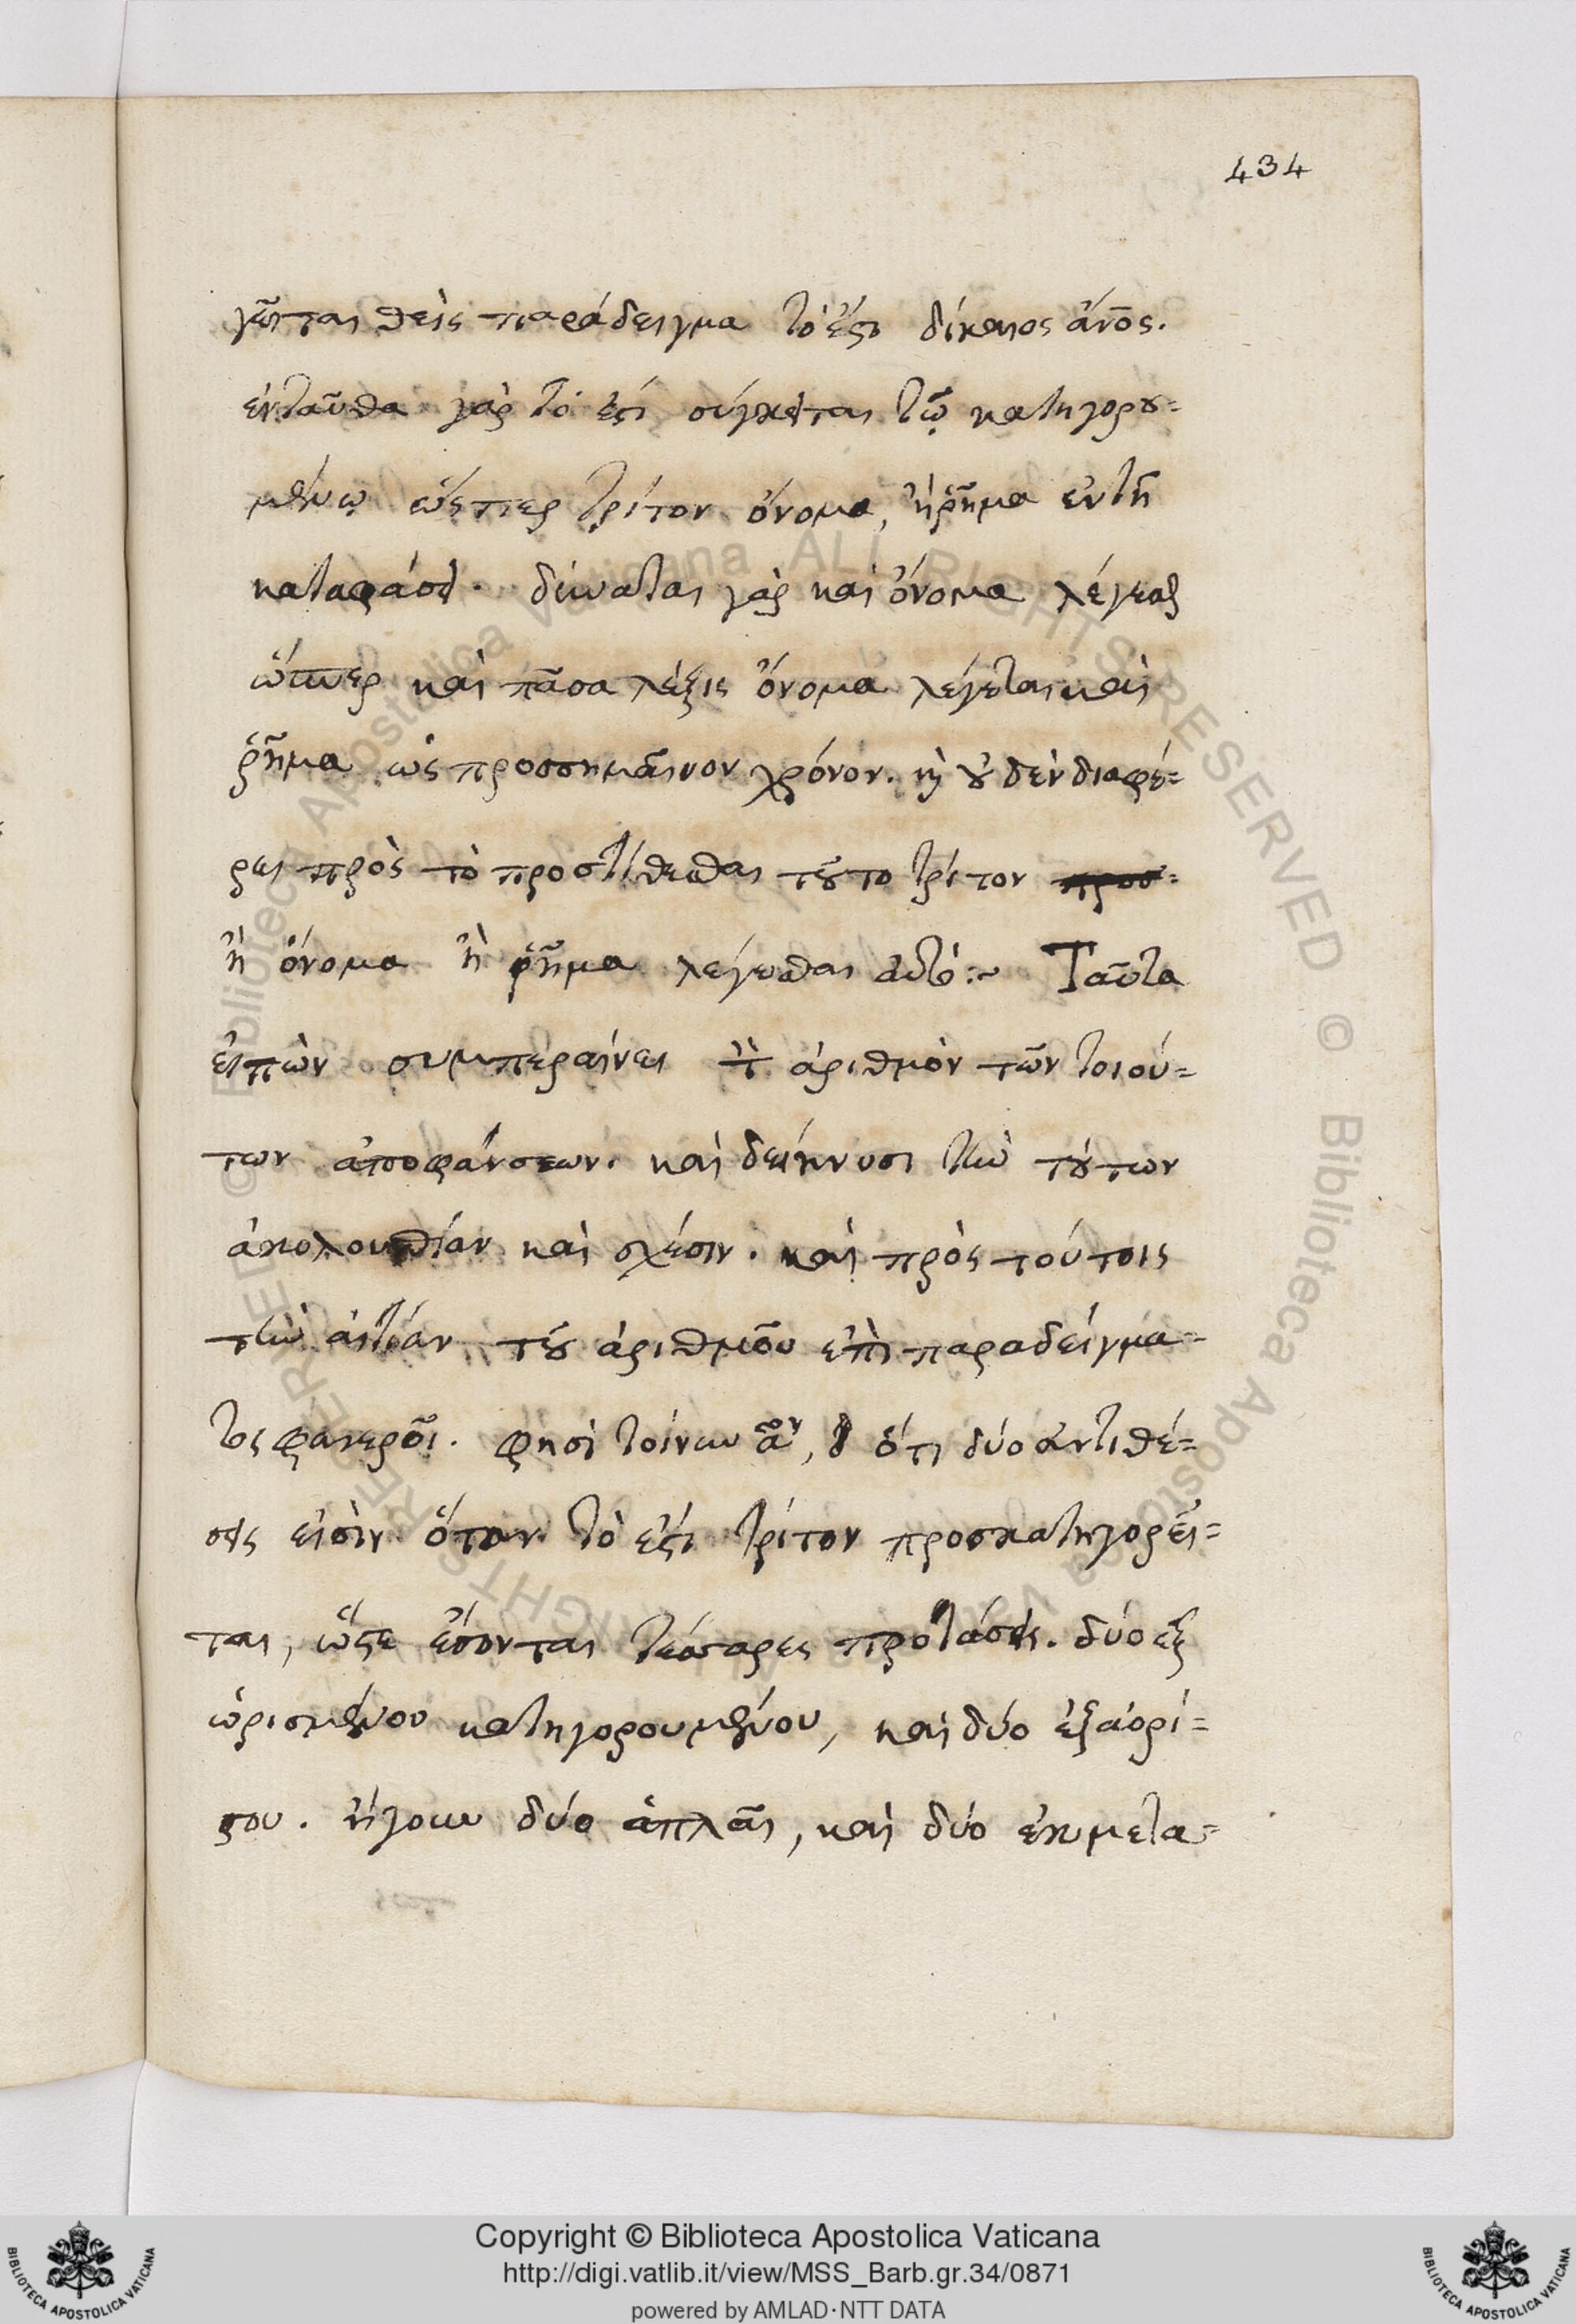 434
γεῖται θεὶς παράδειγμα τὸ ἔστι δίκαιος ἄνος.
ἐνταῦθα γὰρ τὸ ἐστὶ σύγκειται τῷ κατηγορου=
μένῳ ὥσπερ τρίτον ὄνομα, ἢ ῥῆμα ἐν τῇ
καταφάσει. δύναται γὰρ καὶ ὄνομα λέγεσθαι
ὥσπερ καὶ πᾶσα λέξις ὄνομα λέγεται καὶ
ῥῆμα ὡς προσσημαῖνον χρόνον. καὶ οὐδὲν διαφέ=
ρει πρὸς τὸ προστίθεσθαι τοῦτο τρίτον προσ=
ἢ ὄνομα ἢ ῥῆμα λέγεσθαι αὐτό:~ Ταῦτα
εἰπὼν συμπεραίνει τὸν ἀριθμὸν τῶν τοιού=
των ἀποφάνσεων. καὶ δείκνυσι τὴν τούτων
ἀκολουθίαν καὶ σχέσιν. καὶ πρὸς τούτοις
τὴν αἰτίαν τοῦ ἀριθμοῦ ἐπὶ παραδείγμα=
τος φανεροῖ. φησὶ τοίνυν ὅτι δύο ἀντιθέ=
σεις εἰσὶν ὅταν τὸ ἐστὶ τρίτον προσκατηγορεῖ=
ται, ὥστε ἔσονται τέσσαρες προτάσεις. δύο ἐξ
ὡρισμένου κατηγορουμένου, καὶ δύο ἐξ ἀορί=
στου. ἤγουν δύο ἁπλαῖ, καὶ δύο ἐκ μετα=
Copyright © Biblioteca Apostolica Vaticana
http://digi.vatlib.it/view/MSS_Barb.gr.34/0871
powered by AMLAD·NTT DATA
BIBLIOTECA APOSTOLICA VATICANA
BIBLIOTECA APOSTOLICA VATICANA